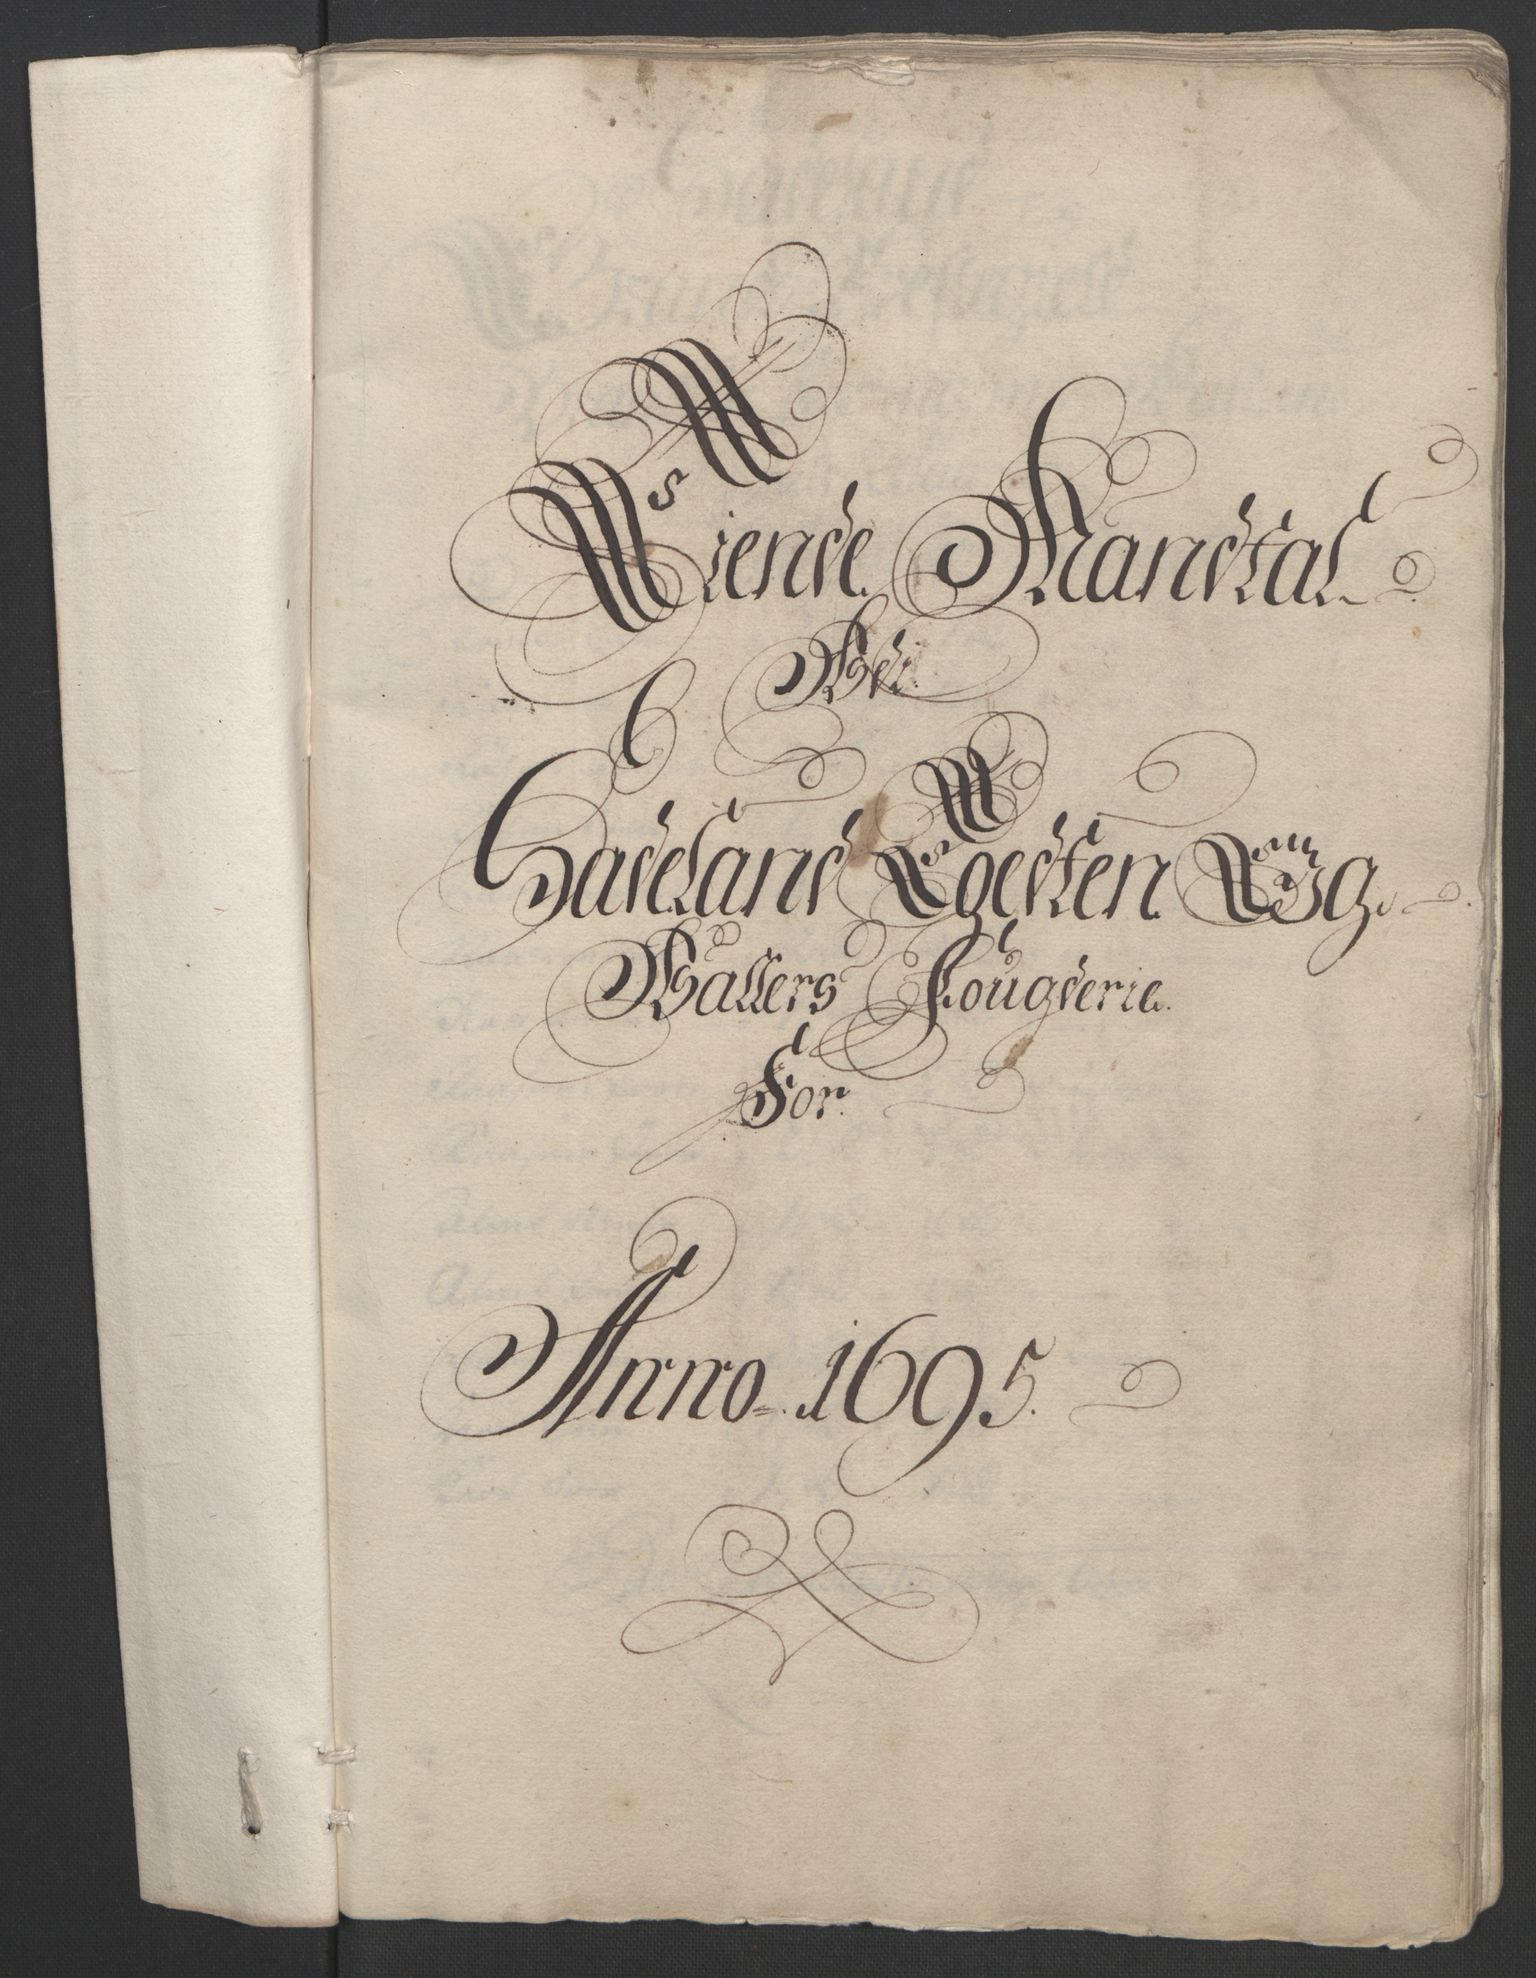 Tiende Mandtal
Ved
Hadeland Toedten Og
Valders Fougderie
For
Anno 1695.